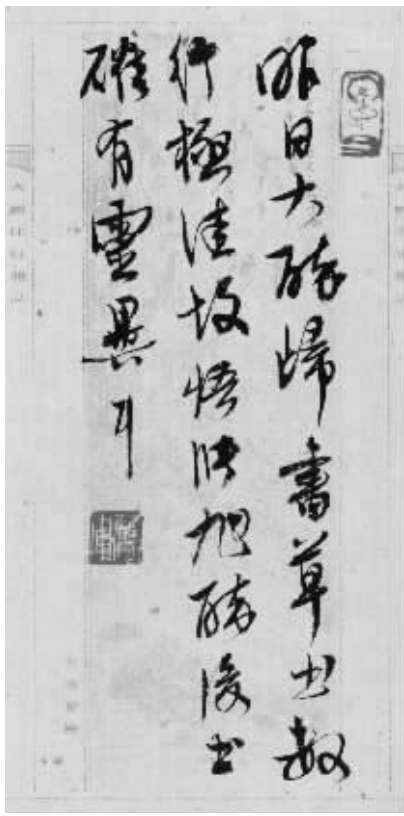 昨日大醉歸書草書數
行極佳故悟張旭醉後書
確有靈異耳